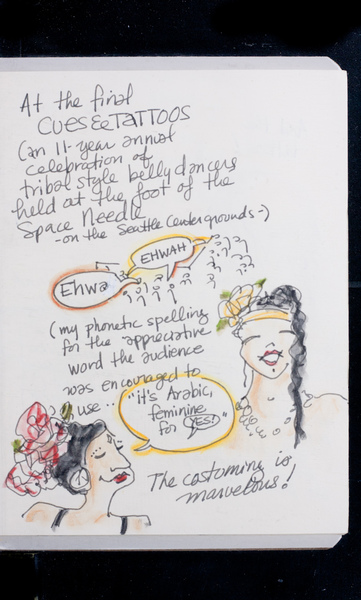 At the final
CUES & TATTOOS
(an 11-year annual
celebration of
tribal style belly dancers
held at the foot of the
Space Needle
-on the Seattle Center grounds-)
EHWAH
Ehwa
(my phonetic spelling
for the appreciative
word the audience
was encouraged to
use..
"it's Arabic,
feminine
for YES!"
The costuming is
marvelous!